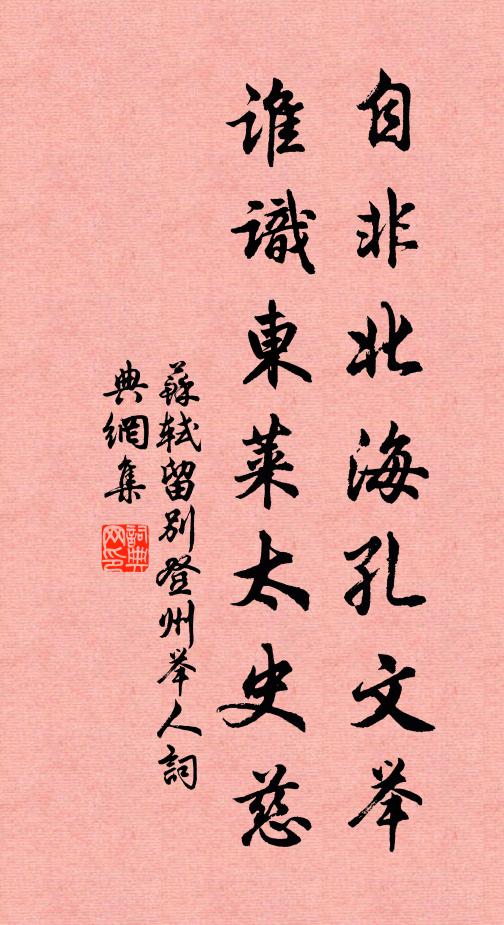 自非北海孔文举
谁識東萊太史慈
蘇軾留别登州举人詞
典網集
詞典
网印